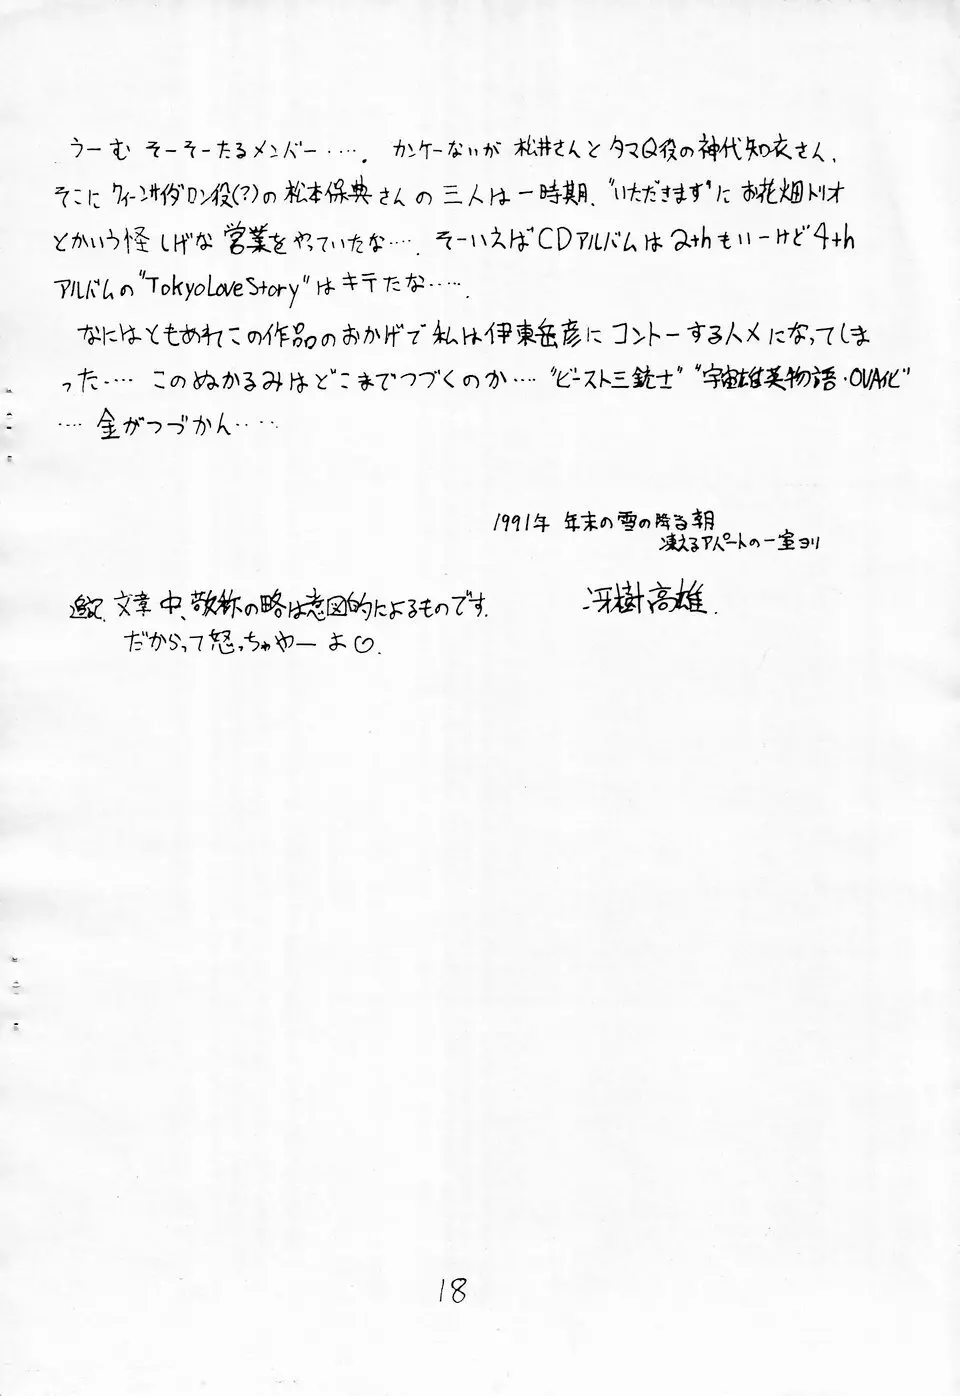 うーむ そーそーたるメンバー‥‥. カンケーないが 松井さんと タマQ役の神代知衣さん、
そこに クィーンサイダロン役(?)の 松本保典さんの 三人は 一時期、"いただきます"に お花畑トリオ
とかいう怪しげな 営業をやっていたな‥‥. そーいえばCDアルバムは 2thもいーけど 4th
アルバムの"TokyoLoveStory"はキテたな‥‥.
なにはともあれこの作品のおかげで 私は 伊東岳彦に コントーする人メになってしま
った‥‥ このぬかるみはどこまでつづくのか‥‥ "ビースト三銃士" "宇宙雄英物語・OVA化"
‥‥ 金がつづかん‥‥
1991年 年末の雪の降る朝
凍えるアパートの一室ヨリ
冴樹高雄.
追記. 文章中、敬称の略は意図的によるものです.
だからって怒っちゃやーよ♡.
18